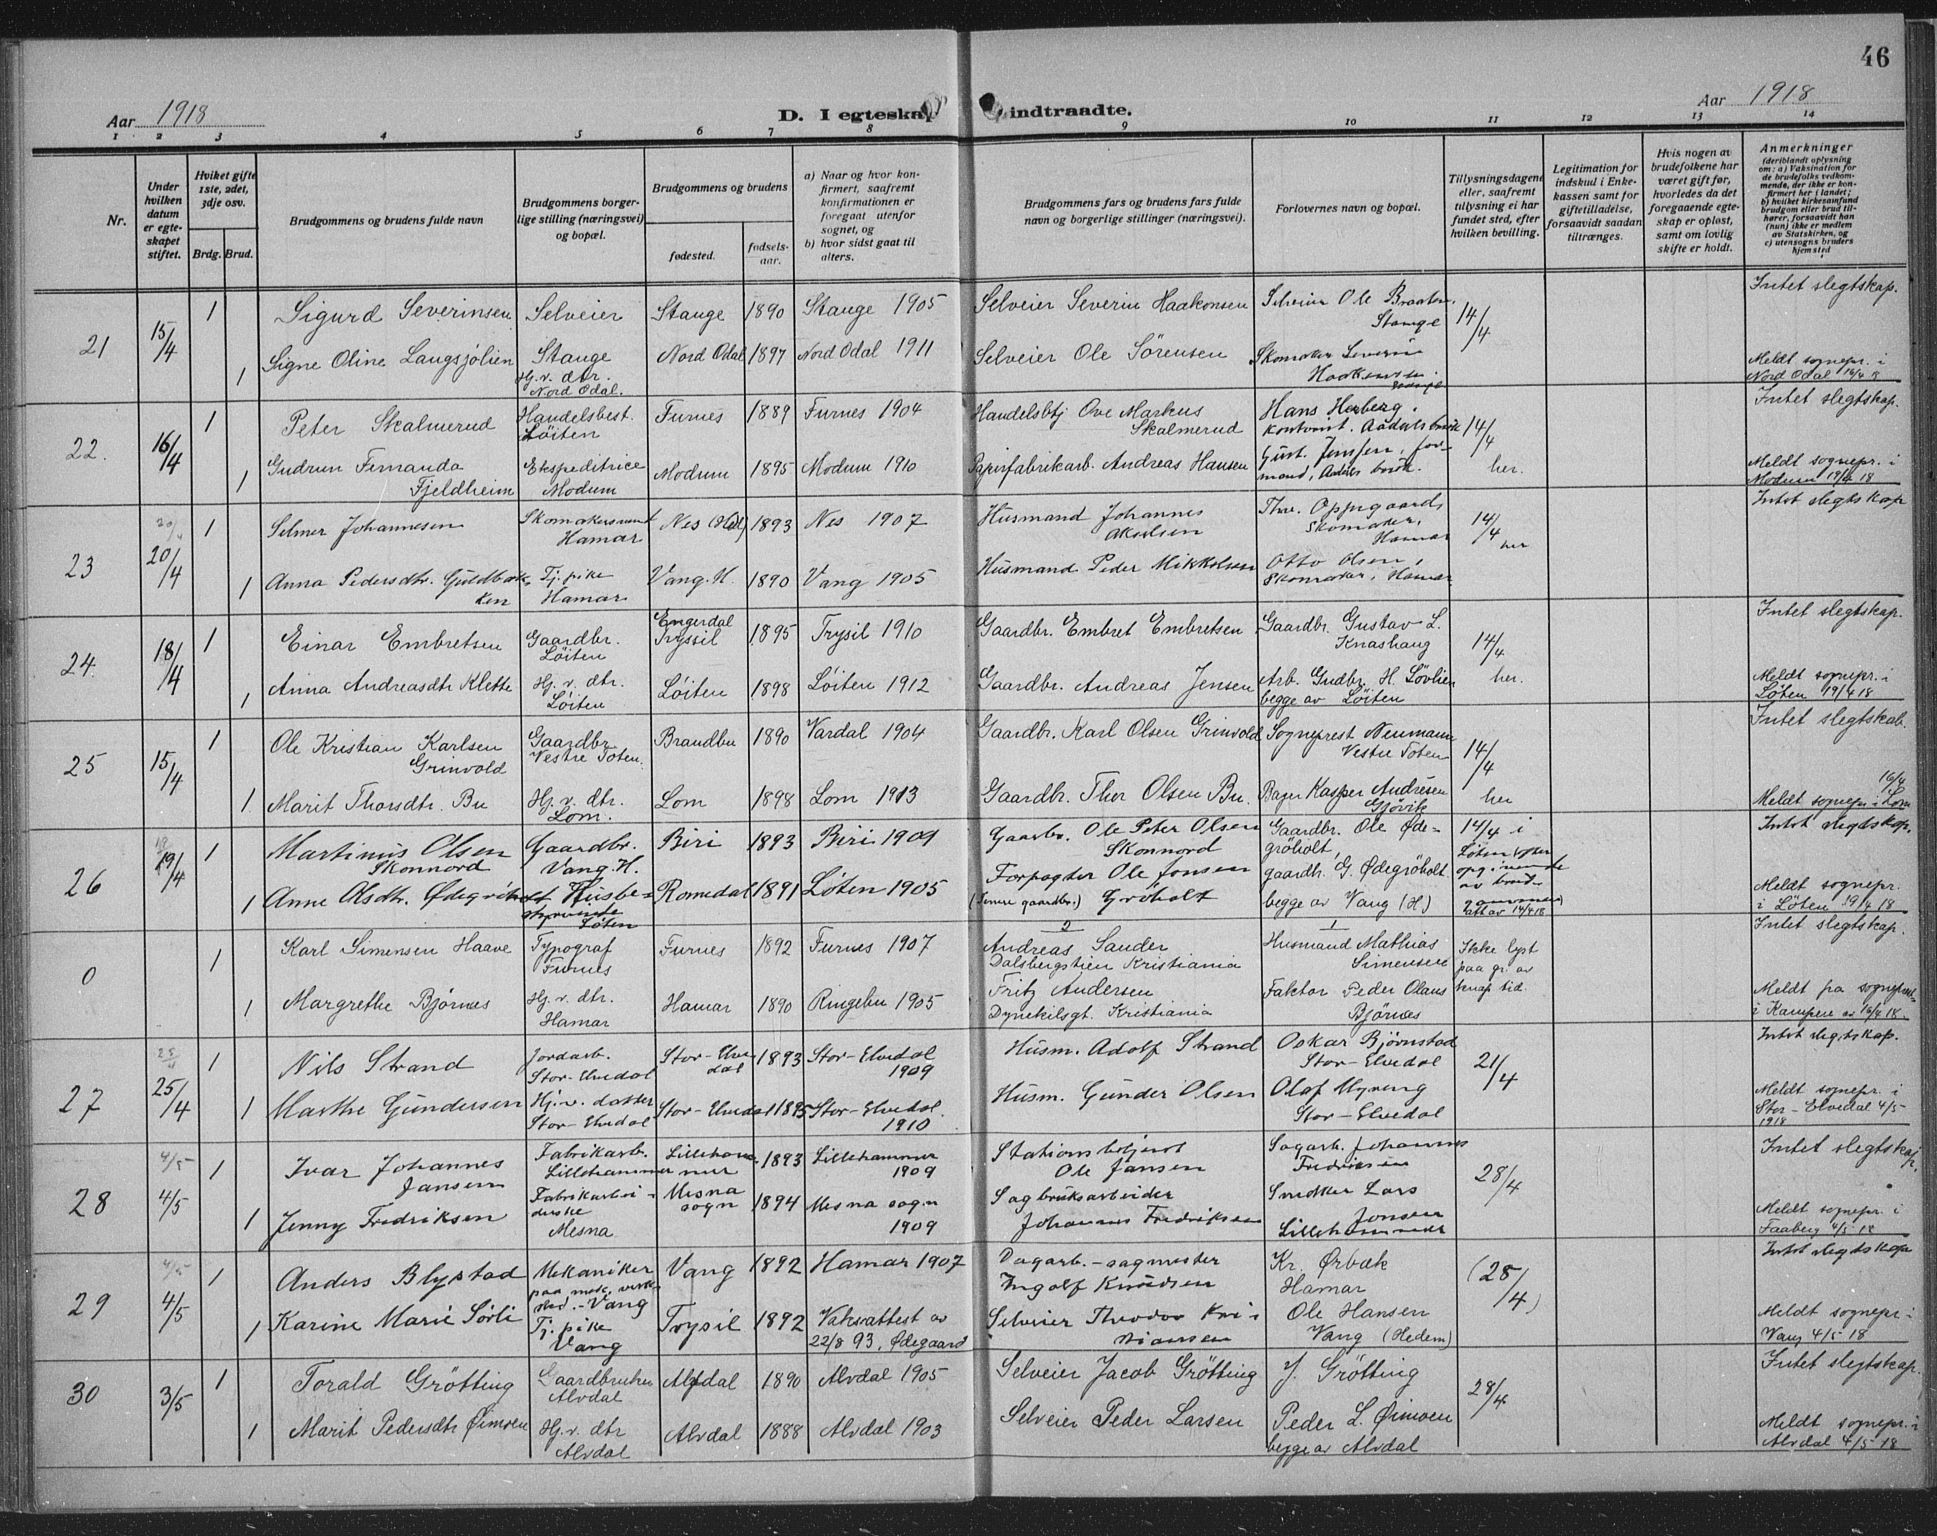 46
Aar 1918
D. I egteskap indtraadte.
Aar 1918
1 2 3 4 5 6 7 8 9 10 11 12 13 14
Nr.
Under hvilken datum er egteskapet stiftet.
Hviket gifte 1ste, 2det, 3dje osv.
Brdg. Brud.
Brudgommens og brudens fulde navn
Brudgommens borgerlige stilling (næringsvei) og bopæl.
Brudgommens og brudens
fødested.
fødselsaar.
a) Naar og hvor konfirmert, saafremt konfirmationen er foregaat utenfor sognet, og
b) hvor sidst gaat til alters.
Brudgommens fars og brudens fars fulde navn og borgerlige stillinger (næringsvei).
Forlovernes navn og bopæl.
Tillysningsdagene eller, saafremt tillysning ei har fundet sted, efter hvilken bevilling.
Legitimation for indskud i Enkekassen samt for giftetilladelse, forsaavidt saadan tiltrænges.
Hvis nogen av brudefolkene har været gift før, hvorledes da det foregaaende egteskap er opløst, samt om lovlig skifte er holdt.
Anmerkninger (deriblandt oplysning om: a) Vaksination for de brudefolks vedkommende, der ikke er konfirmert her i landet; b) hvilket kirkesamfund brudgom eller brud tilhører, forsaavidt han (hun) ikke er medlem av Statskirken, og c) utensogns bruders hjemsted
21 15/4 1 Sigurd Severinsen Selveier Stange 1890 Stange 1905 Selveier Severin Haakonsen Selveier Ole Braaten Stange 14/4 Intet slegtskap.
1 Signe Oline Langsjølien Stange Hj. v. dtr. Nord Odal. Nord Odal 1897 Nord Odal 1911 Selveier Ole Sørensen Skomaker Severin Haakensen Meldt sognepr. i Nord Odal 16/4 18
22. 16/4 1 Peter Skalmerud Handelsbest. Løiten Furnes 1889 Furnes 1904 Handelsbtj Ove Markus Skalmerud Hans Herberg, kontorist. Aadals bruk 14/4 Intet slegtskap.
1 Gudrun Fernanda Fjeldheim Ekspeditrice Modum Modum 1895 Modum 1910 Papirfabrikarb. Andreas Hansen Gust. Jensen, formand, Aadals bruk. her. Meldt sognepr. i Modum 19/4 18
23 20/4 20/4 1 Selmer Johannesen Skomakersvend Hamar Nes (Hed) 1893 Nes 1907 Husmand Johannes Akselsen Thv. Oppegaard, Skomaker, Hamar 14/4 her Intet slegtskap
1 Anna Pedersdtr. Guldbakken Tj. pike Hamar Vang. H. 1890 Vang 1905 Husmand Peder Mikkelsen Otto Olsen, Skomaker, Hamar
24. 18/4 1 Einar Embretsen Gaardbr. Løiten Engerdal Trysil 1895 Trysil 1910 Gaardbr. Embret Embretsen Gaardbr. Gustav L. Knashaug 14/4 Intet slegtskap.
1 Anna Andreasdtr Klette Hj. v. dtr. Løiten Løiten 1898 Løiten 1912 Gaardbr. Andreas Jensen Arb. Gudbr. H. Løvlien begge av Løiten her. Meldt sognepr. i Løten 19/4 18
25 15/4 1 Ole Kristian Karlsen Grinvold Gaardbr. Vestre Toten. Brandbu 1890 Vardal 1904 Gaardbr. Karl Olsen Grinvold Sogneprest Neumann Vestre Toten 14/4 Intet slegtskab.
1. Marit Thorsdtr. Bu Hj. v. dtr. Lom. Lom 1898 Lom 1913 Gaardbr. Thor Olsen Bu. Bager Kasper Andresen Gjøvik her 16/4 Meldt sognepr. i Lom
26 18 19/4 1 Martinus Olsen Skonnord Gaardbr. Vang. H. Biri 1893 Biri 1909 Gaarbr. Ole Peter Olsen Skonnord Gaardbr. Ole Ødegrøholt, 14/4 i Løten Intet slegtskap.
1 Anne Olsdtr. Ødegrøholt Husbestyrerinde Løten Romedal 1891 Løten 1905 Forpagter Ole Jonsen (Senere gaardbr.) Grøholt gaardbr. G. Ødegrøholt begge av Vang (H) att av 14/4 18 Meldt sognepr. i Løten 19/4 18
0 1 Karl Simensen Haave Typograf Furnes Furnes 1892 Furnes 1907 2 Andreas Sander Dalsbergstien Kristiania 1 Husmand Mathias Simensen Ikke lyst paa gr. av knap tid Intet slegtskap.
1 Margrethe Bjørnes Hj. v. dtr. Hamar Hamar 1890 Ringebu 1905 Fritz Andersen Dynekilsgt. Kristiania Faktor Peder Olaus Bjørnes Meldt fra sognepr. i Kampen av 16/4 18.
27 25/4 25/4 1 Nils Strand Jordarb. Stor-Elvedal Stor-Elvedal 1893 Stor-Elvedal 1909 Husm. Adolf Strand Oskar Bjørnstad Stor-Elvedal 21/4 Intet slegtskap.
1 Marthe Gundersen Hj. v. datter Stor-Elvedal Stor-Elvedal 1895 Stor-Elvedal. 1910 Husm. Gunder Olsen Olof Myreng Stor-Elvedal Meldt sognepr. i Stor-Elvedal 4/5 1918
28 4/5 4/5 1 Ivar Johannes Jansen Fabrikarb. Lillehammer Lillehammer 1893 Lillehammer 1909 Stationsbetjent Ole Jansen Sagarb. Johannes Fredriksen 28/4 Intet slegtskap.
1 Jenny Fredriksen Fabrikarbeiderske Mesna Mesna sogn 1894 Mesna sogn 1909 Sagbruksarbeider Johannes Fredriksen Snedker Lars Jonsen Lillehammer Meldt sognepr. i Faaberg 4/5 18
29 4/5 4/5 1 Anders Blystad Mekaniker paa mek. verksted. - Vang Vang 1892 Hamar 1907 Dagarb. - sagmester Ingolf Knudsen Kr. Ørbæk Hamar (28/4) Intet slegtskap
1 Karine Marie Sørli Tj. pike Vang Trysil 1892 Vaksattest av 22/8 93. Ødegaard Selveier Theodor Kristiansen Ole Hansen Vang (Hedem) Meldt sognepr. i Vang 4/5 18
30 3/5 1 Torald Grøtting Gaardbruker Alvdal Alvdal 1890 Alvdal 1905 Selveier Jacob Grøtting J. Grøtting 28/4 Intet slegtskap.
1 Marit Pedersdtr Øimoen Hj. v. dtr Alvdal Alvdal 1888 Alvdal 1903 Selveier Peder Larsen Peder L. Øimoen begge av Alvdal Meldt sognepr. i Alvdal 4/5 18